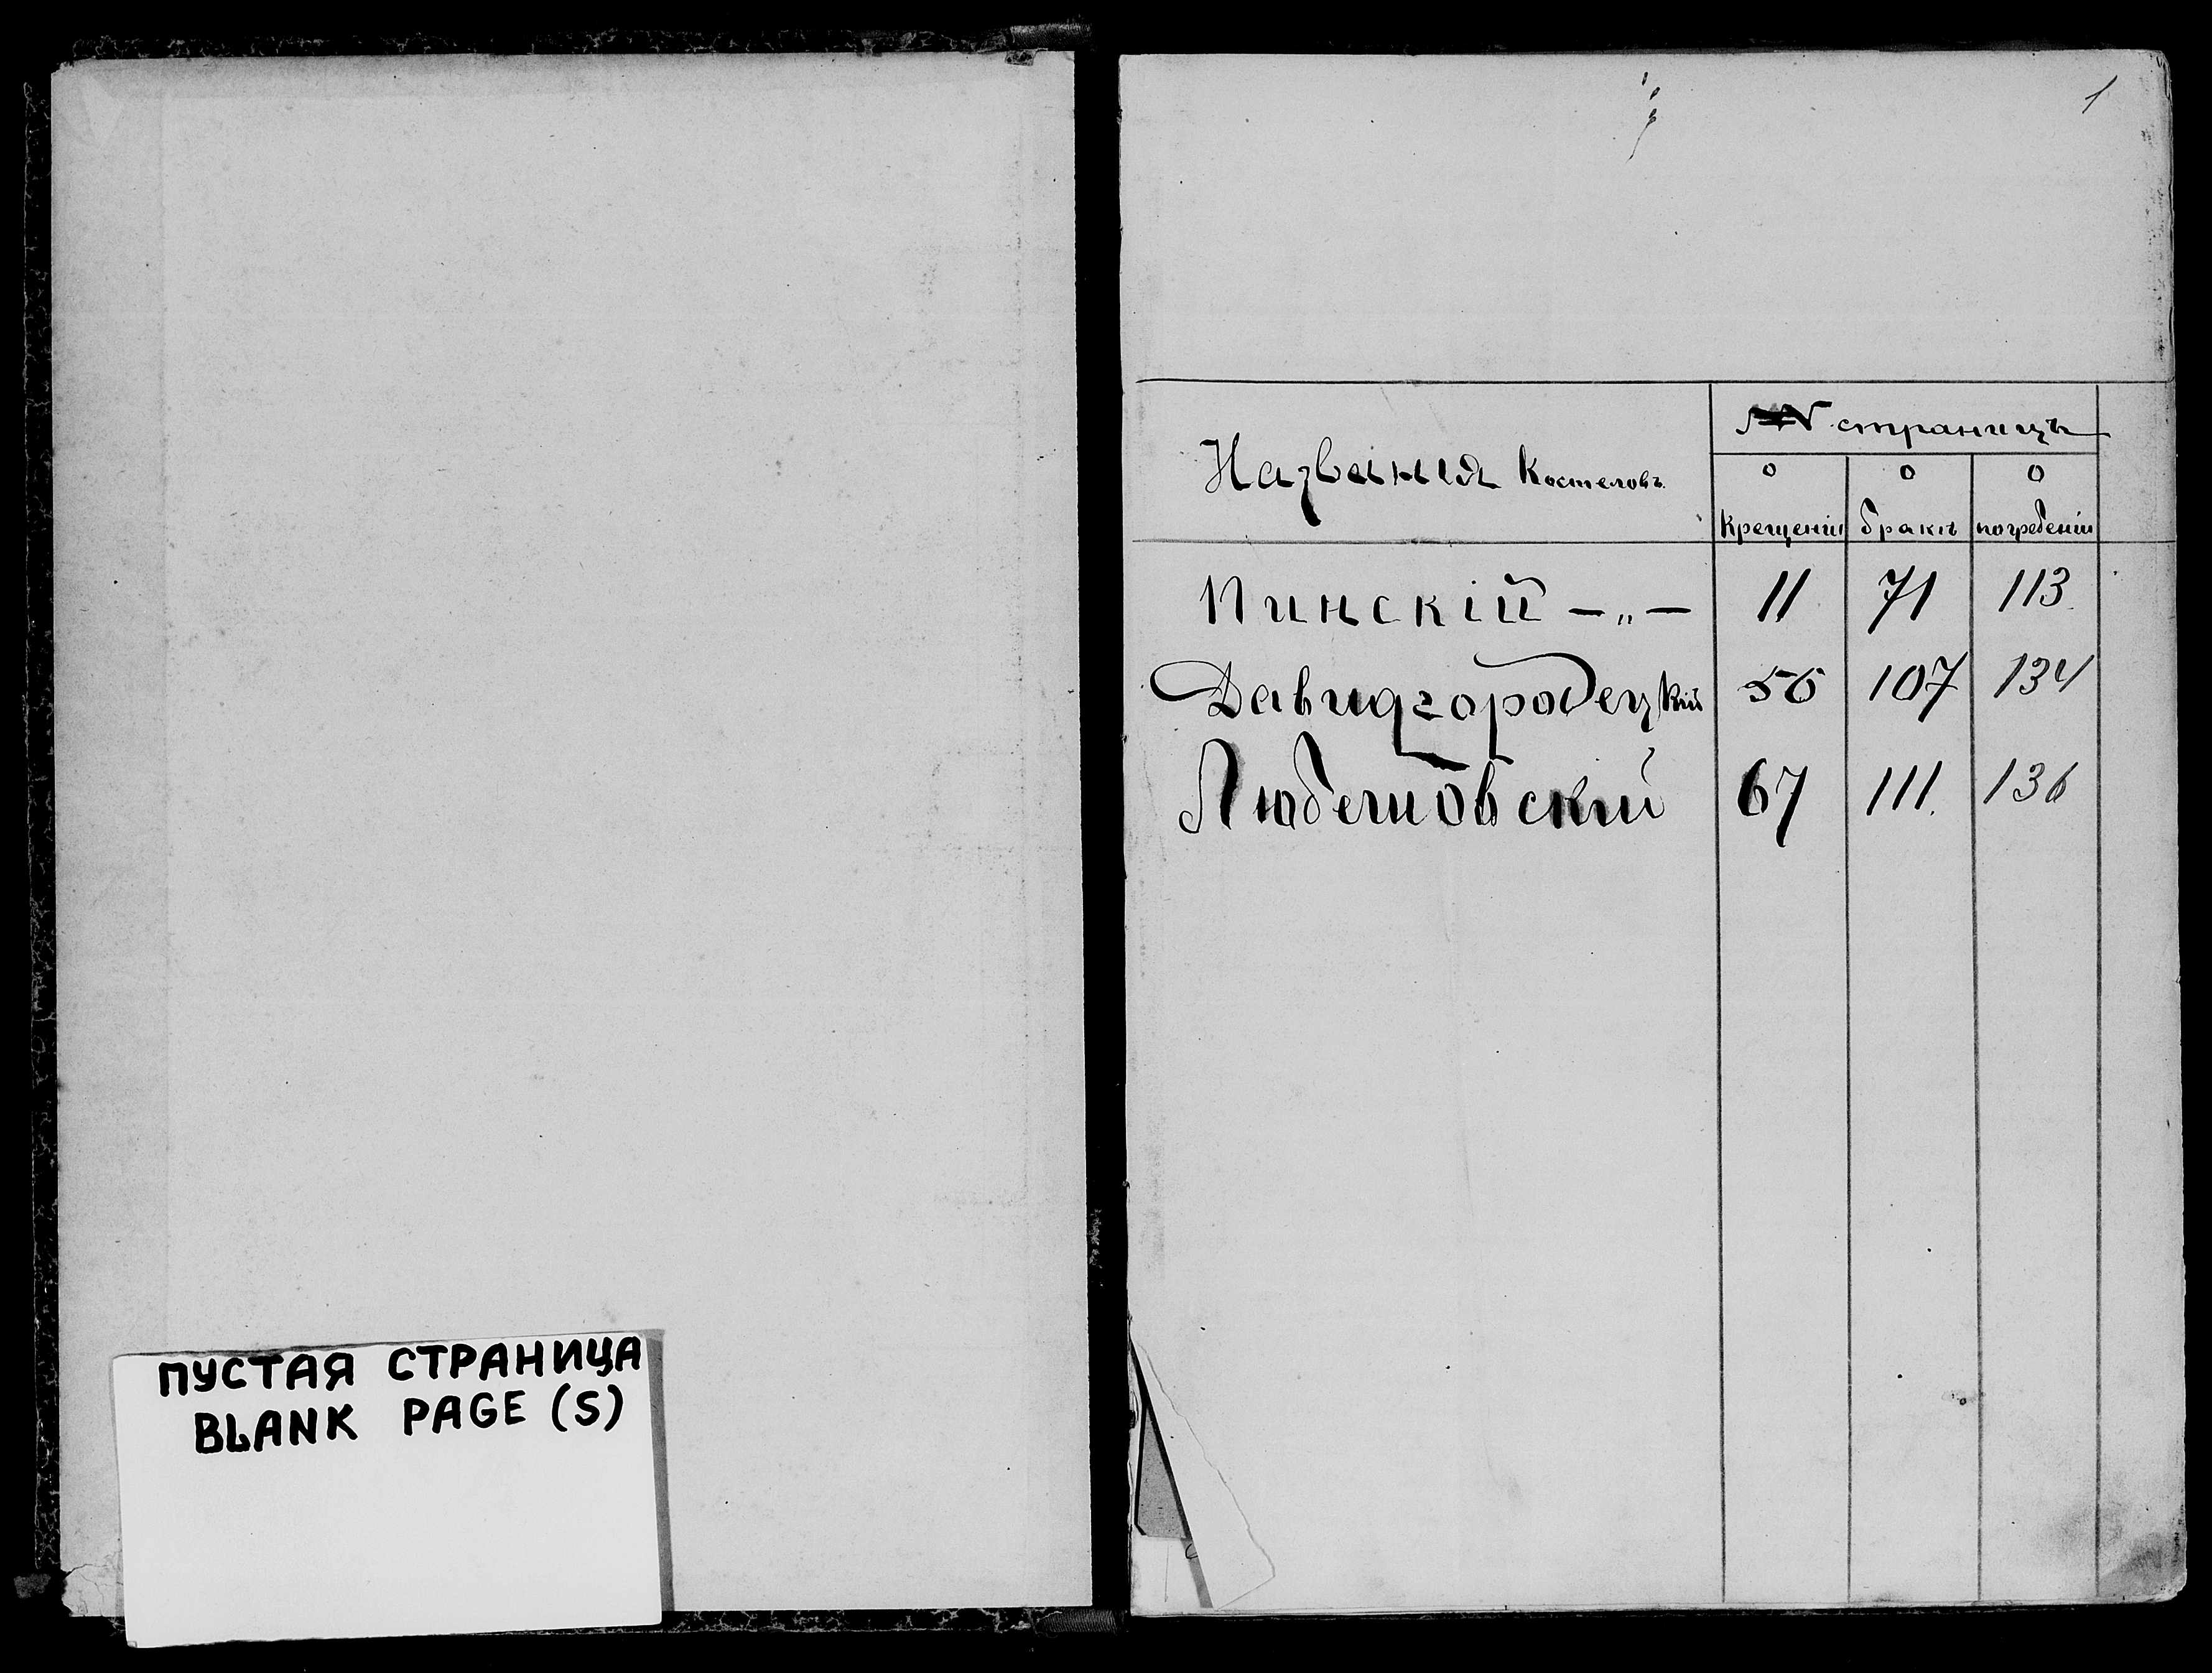 ПУСТАЯ СТРАНИЦА
BLANK PAGE (S)
1
Названия Костеловъ
№№ страницъ
о о о
крещеніи бракѣ погребеніи
Пинскій —„— 11 71 113
Давидгородецкій 56 107 134
Любешовскій 67 111 136